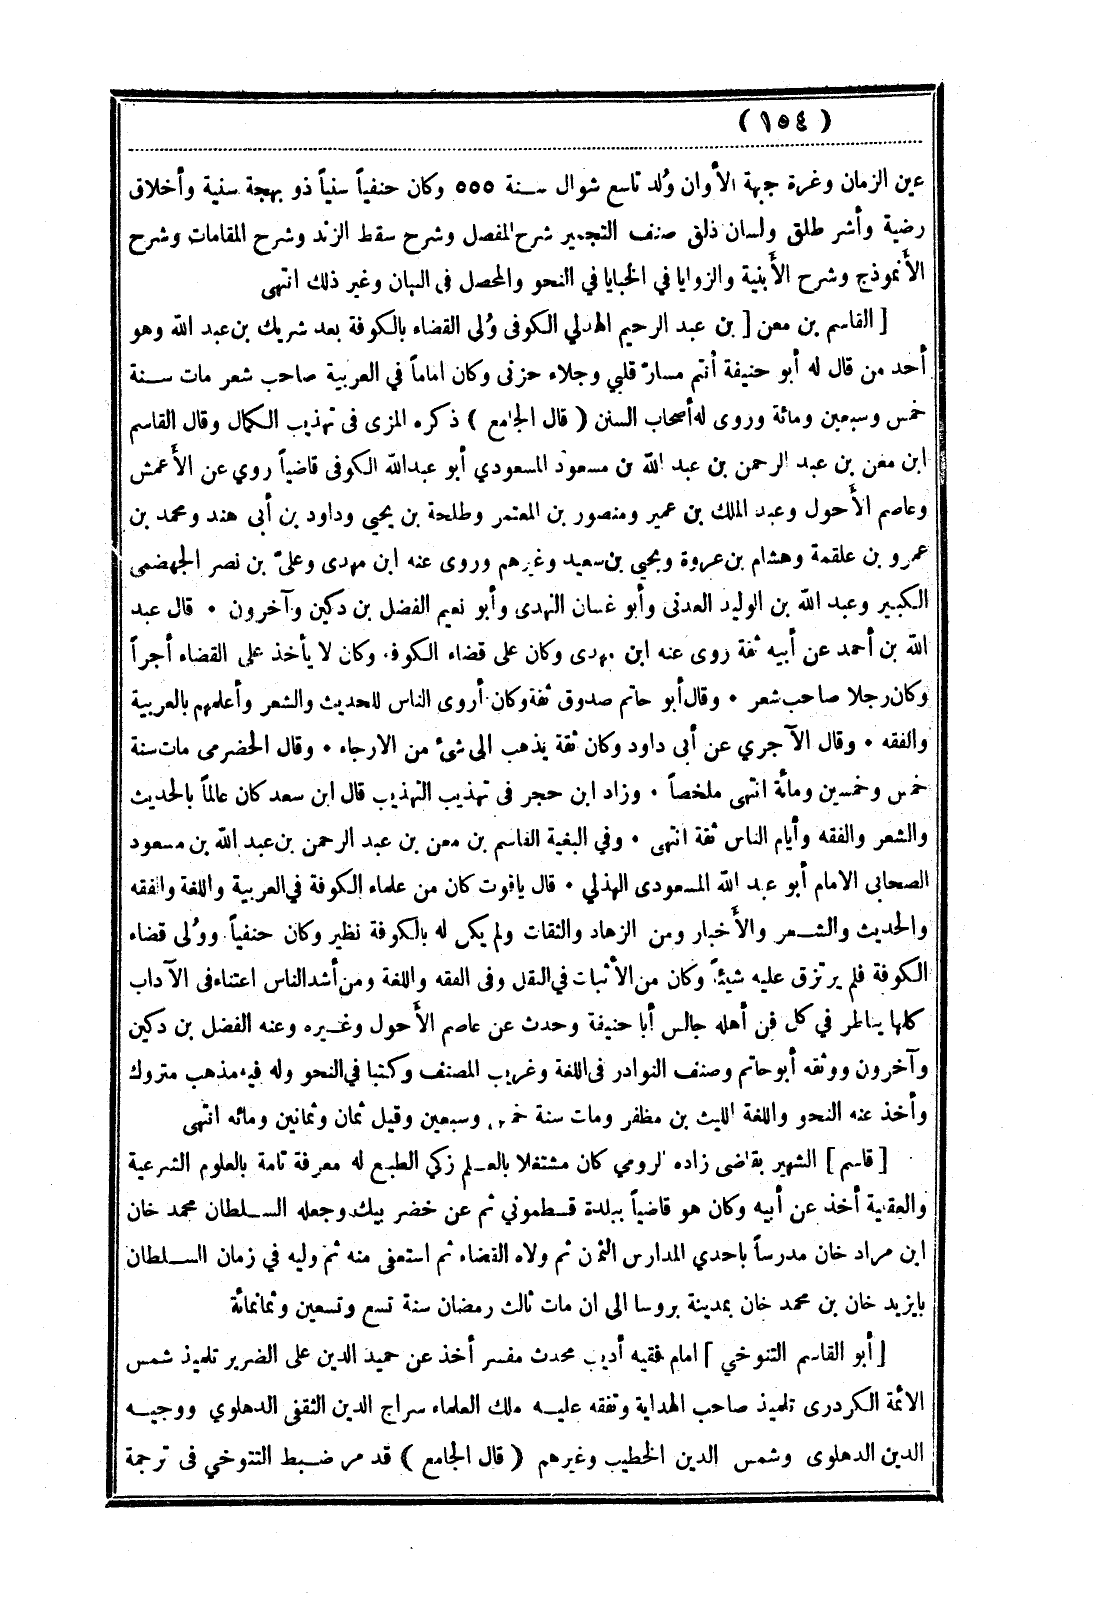 ( ١٥٤ )
عين الزمان وغرة جبهة الأوان وُلد تاسع شوال سنة ٥٥٥ وكان حنفياً سنياً ذو بهجة سنية وأخلاق
رضية وأشر طلق ولسان ذلق صنف التجمير شرح المفصل وشرح سقط الزند وشرح المقامات وشرح
الأنموذج وشرح الأبنية والزوايا في الخبايا في النحو والمحصل فى البيان وغير ذلك انتهى
[ القاسم بن معن [ بن عبد الرحيم الهذلي الكوفى وُلى القضاء بالكوفة بعد شريك بن عبد الله وهو
أحد من قال له أبو حنيفة أنتم مسارّ قلبي وجلاء حزنى وكان اماماً في العربية صاحب شعر مات سنة
خمس وسبعين ومائة وروى له أصحاب السنن ( قال الجامع ) ذكره المزى فى تهذيب الكمال وقال القاسم
ابن معن بن عبد الرحمن بن عبد الله بن مسعود المسعودي أبو عبدالله الكوفى قاضياً روي عن الأعمش
وعاصم الأحول وعبد الملك بن عمير ومنصور بن المعتمر وطلحة بن يحيي وداود بن أبى هند ومحمد بن
عمرو بن علقمة وهشام بن عروة ويحيي بن سعيد وغيرهم وروى عنه ابن مهدى وعلىّ بن نصر الجهضمى
الكبير وعبد الله بن الوليد العدنى وأبو غسان النهدى وأبو نعيم الفضل بن دكين وآخرون • قال عبد
الله بن أحمد عن أبيه ثقة روى عنه ابن مهدى وكان على قضاء الكوفة وكان لا يأخذ على القضاء أجراً
وكان رجلا صاحب شعر • وقال أبو حاتم صدوق ثقة وكان أروى الناس للحديث والشعر وأعلمهم بالعربية
والفقه • وقال الآجري عن أبى داود وكان ثقة يذهب الى شئ من الارجاء • وقال الحضرمى مات سنة
خمس وخمسين ومائة انتهى ملخصاً • وزاد ابن حجر فى تهذيب التهذيب قال ابن سعد كان عالماً بالحديث
والشعر والفقه وأيام الناس ثقة انتهى • وفي البغية القاسم بن معن بن عبد الرحمن بن عبد الله بن مسعود
الصحابى الامام أبو عبد الله المسعودى الهذلي • قال ياقوت كان من علماء الكوفة في العربية واللغة والفقه
والحديث والشعر والأخبار ومن الزهاد والثقات ولم يكن له بالكوفة نظير وكان حنفياً وولى قضاء
الكوفة فلم يرتزق عليه شيئاً وكان من الأثبات في النقل وفى الفقه واللغة ومن أشد الناس اعتناء فى الآداب
كلها يناظر في كل فن أهله جالس أبا حنيفة وحدث عن عاصم الأحول وغيره وعنه الفضل بن دكين
وآخرون ووثقه أبو حاتم وصنف النوادر فى اللغة وغريب المصنف وكتبا في النحو وله فيه مذهب متروك
وأخذ عنه النحو واللغة الليث بن مظفر ومات سنة خمس وسبعين وقيل ثمان وثمانين ومائه انتهى
[ قاسم ] الشهير بقاضى زاده الرومي كان مشتغلا بالعلم زكي الطبع له معرفة تامة بالعلوم الشرعية
والعقلية أخذ عن أبيه وكان هو قاضياً ببلدة قسطموني ثم عن خضر بيك وجعله السلطان محمد خان
ابن مراد خان مدرساً باحدي المدارس الثمن ثم ولاه القضاء ثم استعفى منه ثم وليه في زمان السلطان
بايزيد خان بن محمد خان بمدينة بروسا الى ان مات ثالث رمضان سنة تسع وتسعين وثمانمائة
[ أبو القاسم التنوخي ] امام فقيه أديب محدث مفسر أخذ عن حميد الدين على الضرير تلميذ شمس
الائمة الكردرى تلميذ صاحب الهداية وتفقه عليه ملك العلماء سراج الدين الثقفى الدهلوي ووجيه
الدين الدهلوى وشمس الدين الخطيب وغيرهم ( قال الجامع ) قد مر ضبط التتوخي فى ترجمة